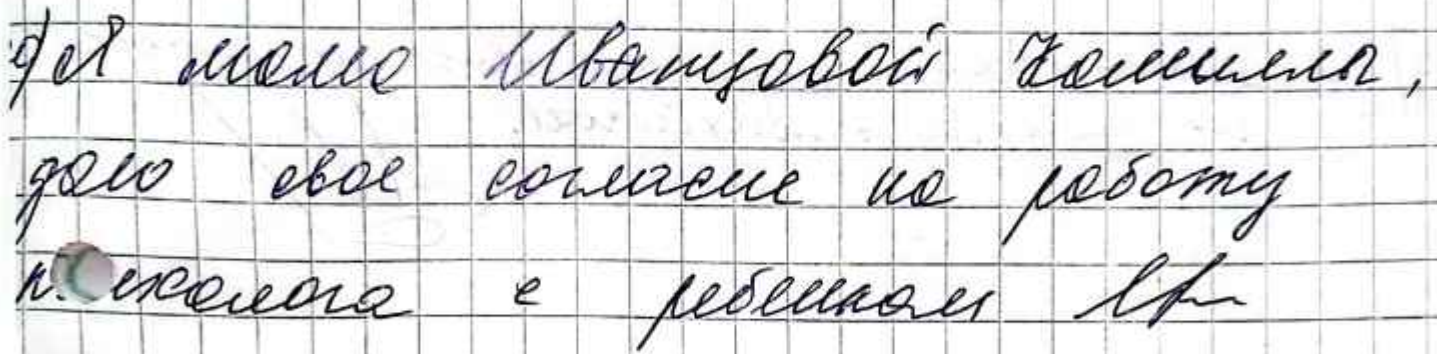 Я мама Иванцовой Камиллы,
даю свое согласие на работу
психолога с ребенком